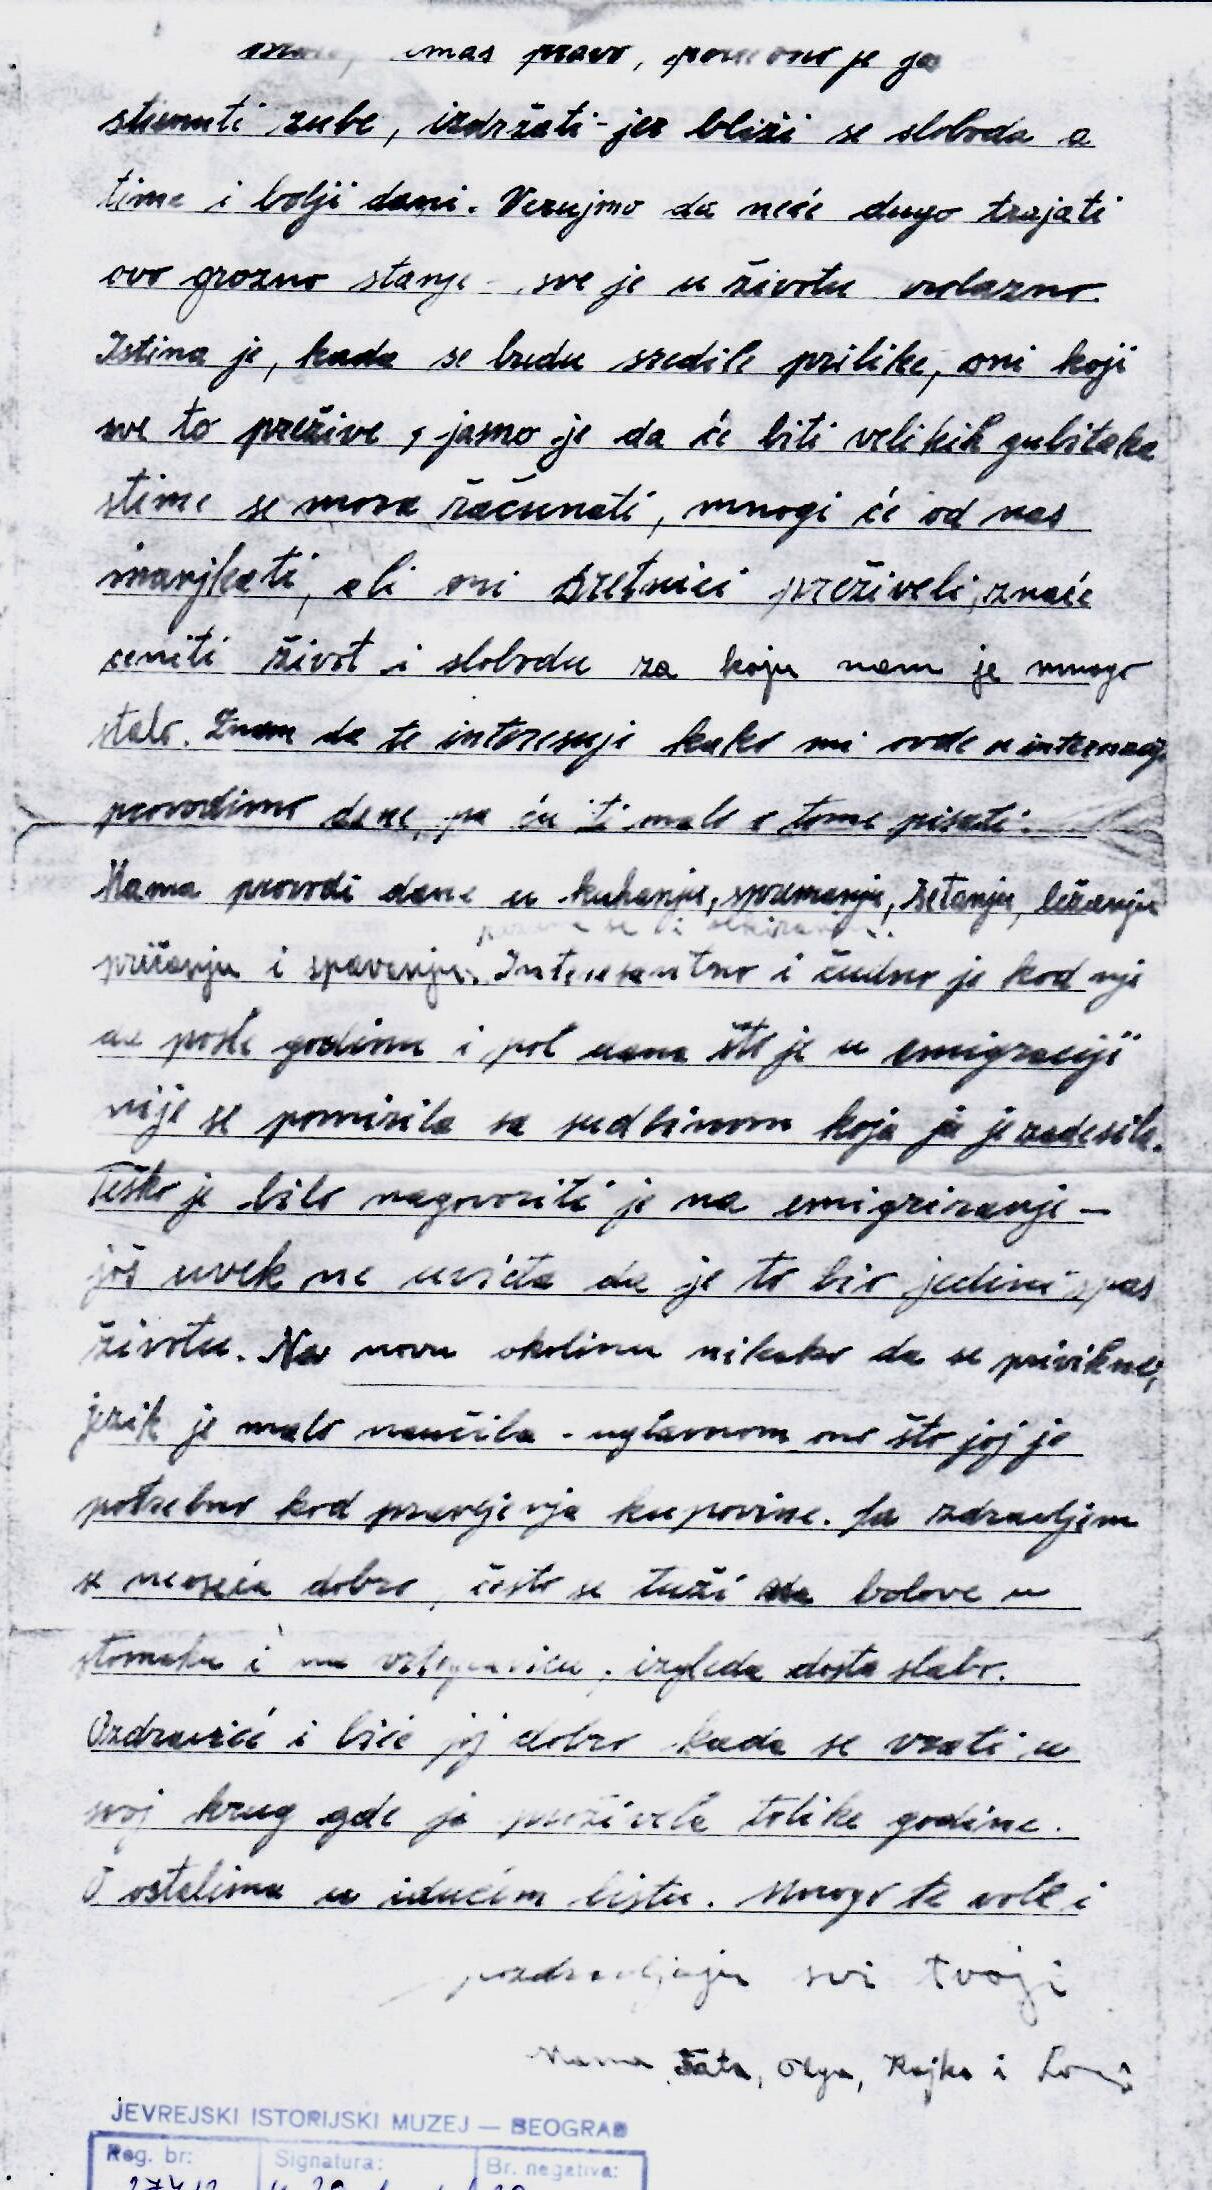 imas pravo, potrebno je
stisnuti zube, izdržati - jer bliži se sloboda a
time i bolji dani. Verujmo da neće dugo trajati
ovo grozno stanje - sve je u životu prolazno.
Istina je, kada se budu sredile prilike, oni koji
sve to prežive, jasno je da će biti velikih gubitaka
stime se mora računati, mnogi će od nas
manjkati, ali oni sretnici preživeli, znaće
ceniti život i slobodu za koju nam je mnogo
stalo. Znam da te interesuje kako mi ovde u internaciji
provodimo dane, pa ću ti malo o tome pisati:
Mama provodi dane u kuhanju, spremanju, šetanju, ležanju
se i
pričanju i spavanju. Interesantno i čudno je kod nje
da posle godinu i pol dana što je u emigraciji
nije se pomirila sa sudbinom koja ju je zadesila.
Teško je bilo nagovoriti je na emigriranje -
još uvek ne uviđa da je to bio jedini spas
životu. Na novu okolinu nikako da se privikne,
jezik je malo naučila - uglavnom ono što joj je
potrebno kod pravljenja kupovine. Sa zdravljem
se neoseća dobro, često se tuži na bolove u
stomaku i na vrtoglavicu, izgleda dosta slabo.
Ozdraviće i biće joj dobro kada se vrati u
svoj krug gde je proživela tolike godine.
O ostalima u idućem listu. Mnogo te vole i
pozdravljaju svi tvoji
Mama, Tata, Olga, Rajko i
JEVREJSKI ISTORIJSKI MUZEJ — BEOGRAD
Reg. br: Signatura: Br. negativa: